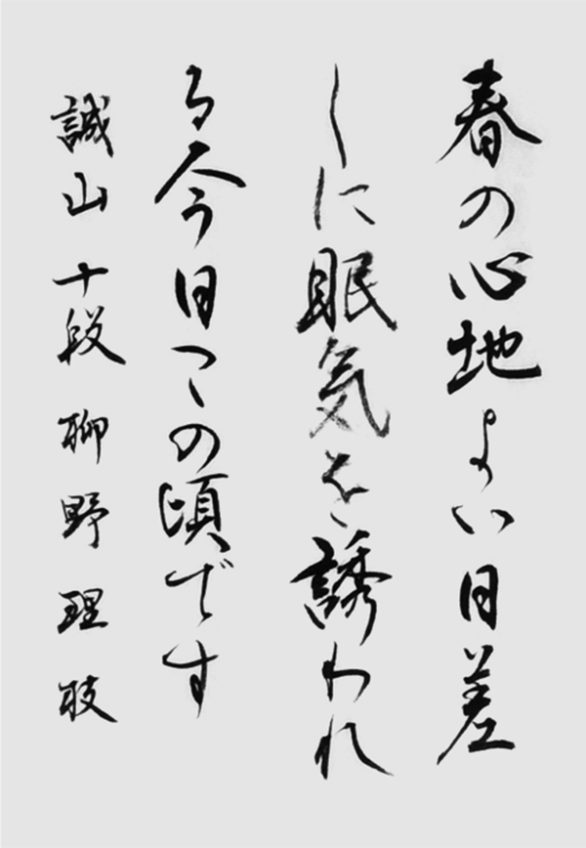 春の心地よい日差
しに眠気を誘われ
る今日この頃です
誠山 十段 聊野 理肢